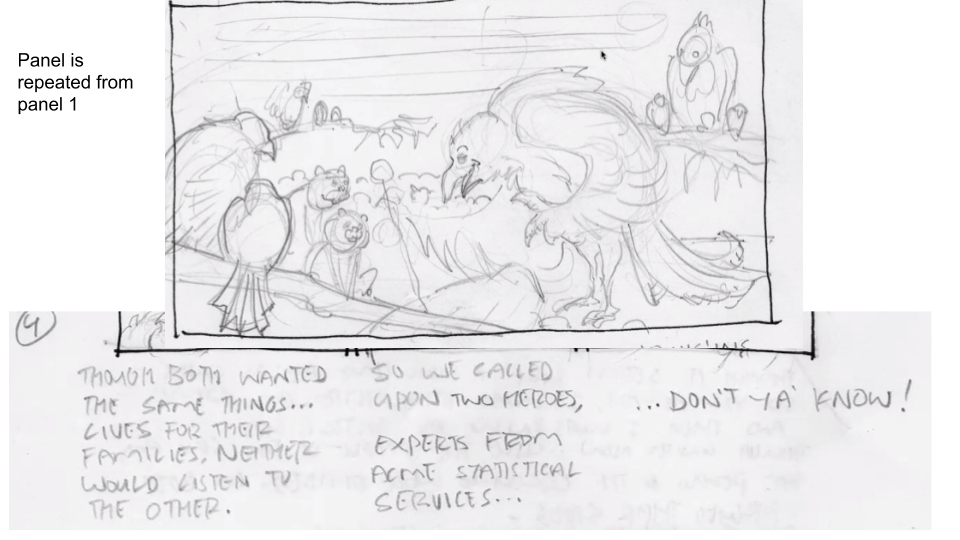 Panel is
repeated from
panel 1
4
THOUGH BOTH WANTED
THE SAME THINGS...
LIVES FOR THEIR
FAMILIES, NEITHER
WOULD LISTEN TO
THE OTHER.
SO WE CALLED
UPON TWO HEROES,
EXPERTS FROM
ACME STATISTICAL
SERVICES...
...DON'T YA' KNOW!